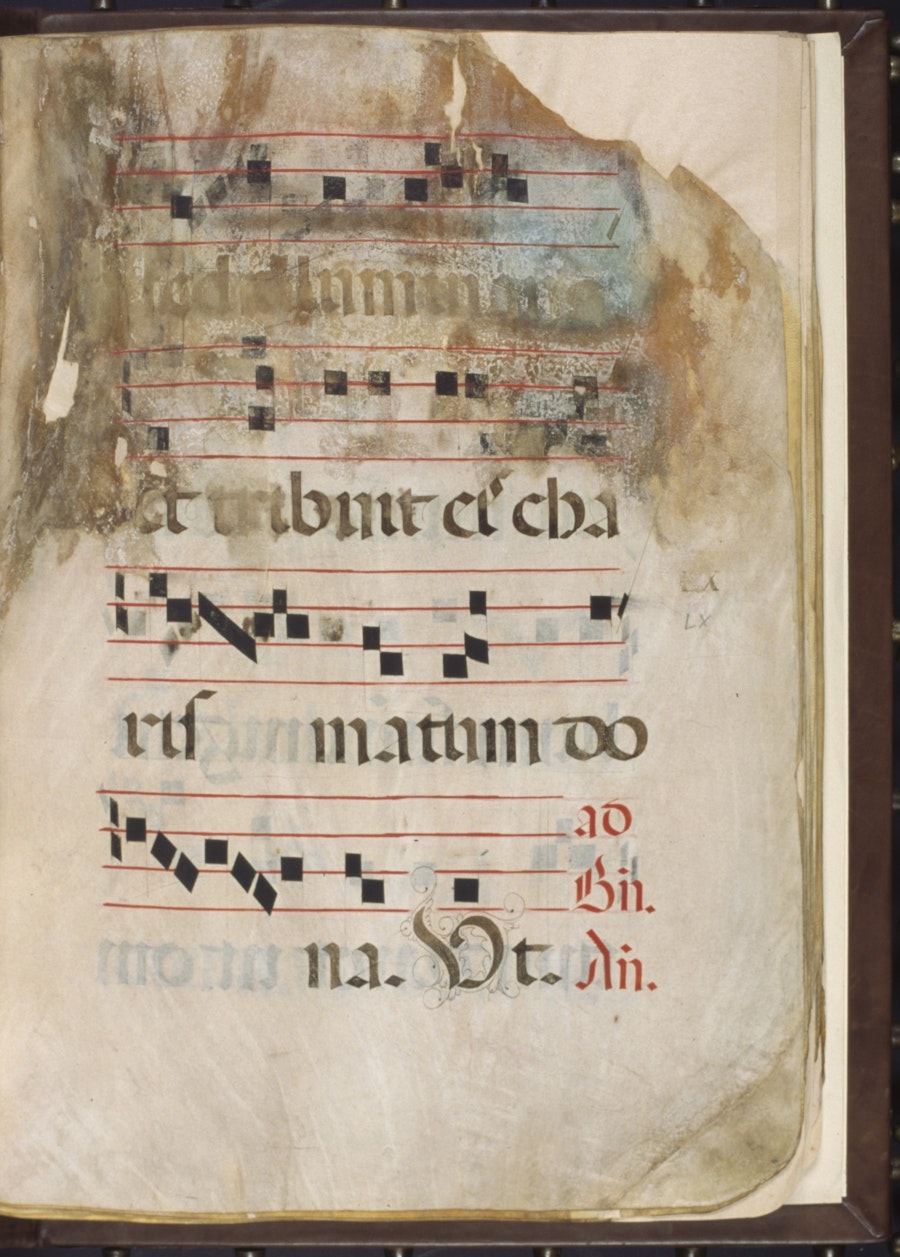 et tribuit eis cha
LX
LX
ris matum do
ad
Bn.
na. Vt. An.